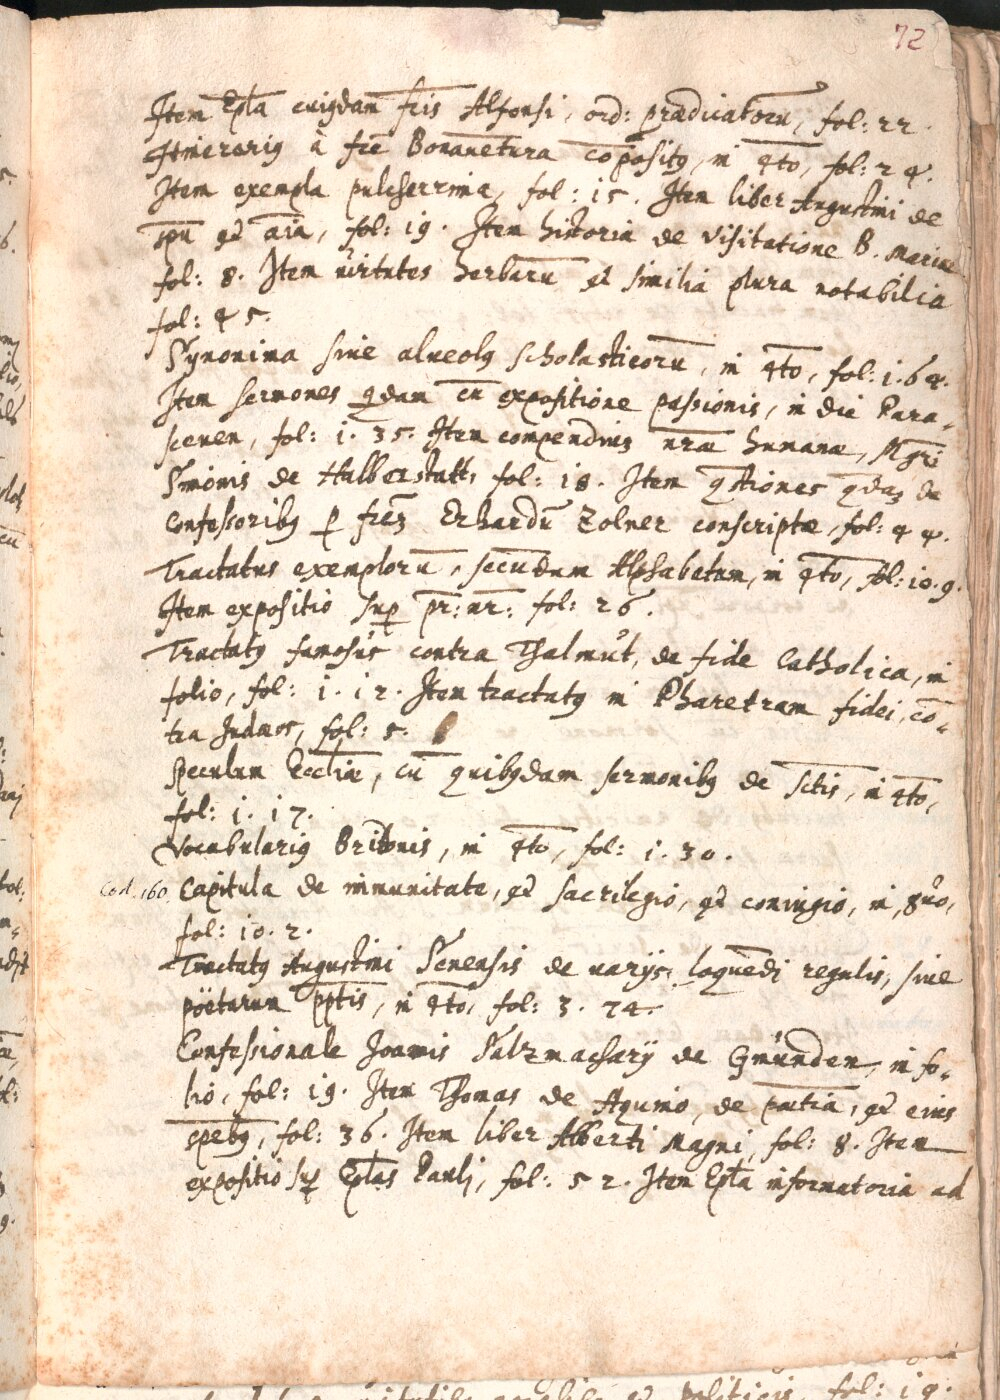 72
Item Epla cuigdam fris Alfonsi, ord: prædicatoru, fol: 22.
Itinerarig à fre Bonauetura copositg, in 4to, fol: 24.
Item exempla pulcherrima, fol: 15. Item liber Augustini de
spu et aia, fol: 19. Item historia de visitatione B. Mariæ
fol: 8. Item virtutes herbaru et similia plura notabilia
fol: 45.
Synonima siue alueolg scholasticoru, in 4to, fol: 1.64.
Item sermones qdam cu expositione passionis, in die Para-
sceuen, fol: 1.35. Item compendiu nræ humanæ, Mgri
Simonis de Halberstatt, fol: 18. Item qstiones qdaz de
Confessoribg p frez Erhardu Zolner conscriptæ, fol: 44.
Tractatus exemploru, secundum Alphabetum, in 4to, fol: 10.9.
Item expositio sup pr: nr: fol: 26.
Tractatg famosus contra Thalmut, de fide Catholica, in
folio, fol: 1.12. Item tractatg in Pharetram fidei, co-
tra Iudæos, fol: 5.
Speculum Eccliæ, cu quibgdam sermonibg de sctis, in 4to,
fol: 1.17.
Vocabularig Britonis, in 4to, fol: 1.30.
Cod. 160. Capitula de immunitate, et sacrilegio, et coniugio, in 8uo,
fol: 10.2.
Tractatg Augustini Senensis de varijs loquedi regulis, siue
poëtarum pptis, in 4to, fol: 3.74.
Confessionale Joannis Salzmacharij de Gmunden, in fo-
lio, fol: 19. Item Thomas de Aquino, de potia, et eius
spebg, fol: 36. Item liber Alberti Magni, fol: 8. Item
expositio sup Eplas Pauli, fol: 52. Item Epla informatoria ad